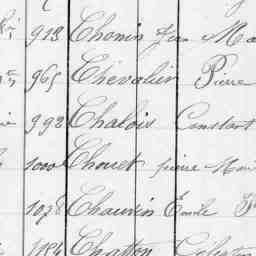 913 Chomin Jean Ma
965 Chevalier Pierre
992 Chalois Constant
1000 Chouet pierre Mar
1028 Chauvin Emile
1184 Chatton Célestin